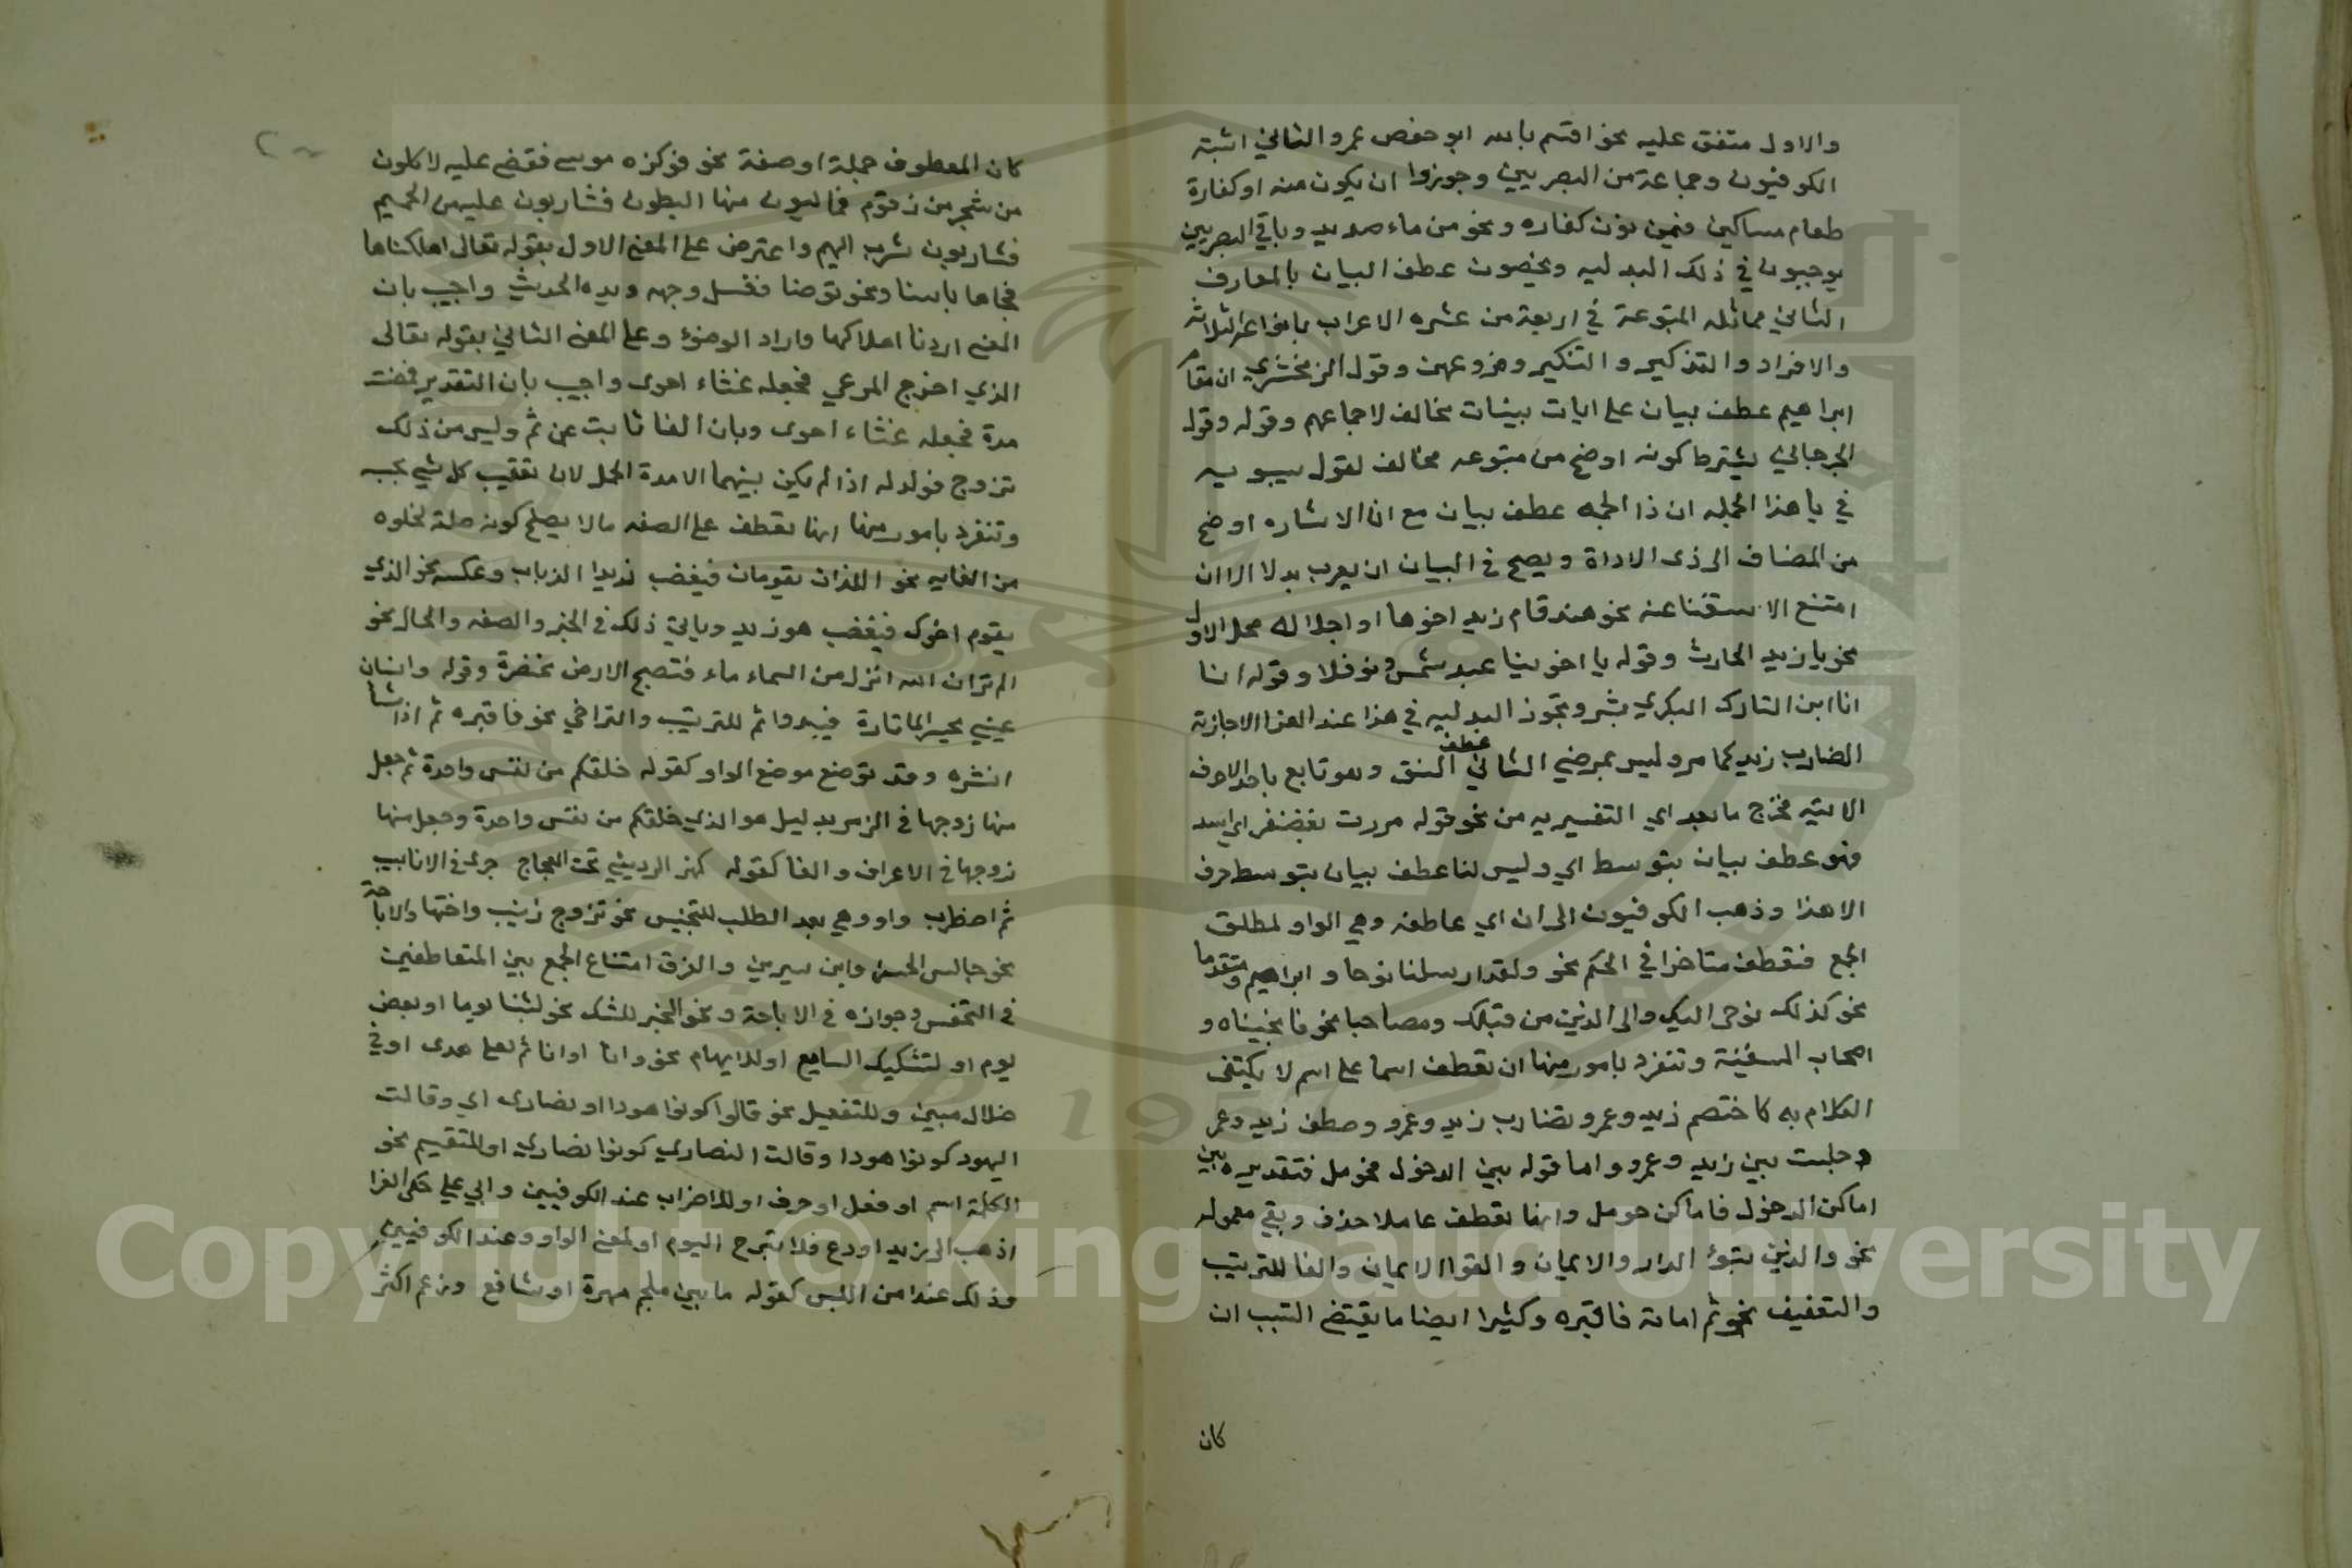 والاول متفق عليه نحو اقسم بالله ابو حفص عمر والثاني اثبته
الكوفيون وجماعة من البصريين وجوزوا ان يكون منه او كفارة
طعام مساكين فيمن نون كفاره ونحو من ماء صديد وباقي البصريين
يوجبون في ذلك البدليه ويخصون عطف البيان بالمعارف
الثاني مماثله المتبوعة في اربعة من عشره الاعراب بانواعه الثلاثه
والافراد والتذكير والتنكير وفروعهن وقول الزمخشري ان مقام
ابراهيم عطف بيان على ايات بينات مخالف لاجماعهم وقوله وقول
الجرجاني يشترط كونه اوضح من متبوعه مخالف لقول سيبويه
في يا هذا الجمله ان ذا الجمه عطف بيان مع ان الاشاره اوضح
من المضاف الى ذى الاداة ويصح في البيان ان يعرب بدلا الا ان
امتنع الاستغنا عنه نحو هند قام زيد اخوها او احلاله محل الاول
نحو يا زيد الحارث وقوله يا اخوينا عبد شمس ونوفلا وقوله انا
انا ابن التارك البكري بشر وتجوز البدليه في هذا عند الفرا الاجازته
الضارب زيد كما مر وليس بمرضي الثاني عطف النسق وهو تابع باحد الاحرف
الاتيه فخرج ما بعد اي التفسيريه من نحو قوله مررت بغضنفر اي اسد
فهو عطف بيان بتوسط اي وليس لنا عطف بيان بتوسط حرف
الا هذا وذهب الكوفيون الى ان اي عاطفه وهي الواو لمطلق
الجمع فتعطف متاخرا في الحكم نحو ولقد ارسلنا نوحا وابراهيم ومتقدما
نحو كذلك نوحى اليك والى الذين من قبلك ومصاحبا نحو فانجيناه و
اصحاب السفينة وتنفرد بامور منها ان تعطف اسما على اسم لا يكتفى
الكلام به كاختصم زيد وعمرو تضارب زيد وعمرو وصطف زيد وعمر
وجلست بين زيد وعمرو واما قوله بين الدخول فحومل فتقديره بين
اماكن الدخول فاماكن حومل وانها تعطف عاملا حذف وبقي معموله
نحو والذين تبوؤ الدار والايمان والقوا الايمان والفا للترتيب
والتعقيب نحو ثم اماته فاقبره وكثيرا ايضا ما يقتضي التسبب ان
كان
كان المعطوف جملة او صفة نحو فوكزه موسى فقضى عليه لاكلون
من شجر من زقوم فمالئون منها البطون فشاربون عليه من الحميم
فشاربون شرب الهيم واعترض على المعنى الاول بقوله تعالى اهلكناها
فجاها باسنا ونحو توضا فغسل وجهه ويديه الحديث واجيب بان
المعنى اردنا اهلاكها واراد الوضؤ وعلى المعنى الثاني بقوله تعالى
الذي اخرج المرعي فجعله غثاء احوى واجيب بان التقدير فمضت
مدة فجعله غثاء احوى وبان الفا نابت عن ثم وليس من ذلك
تزوج فولد له اذا لم يكن بينهما الا مدة الحمل لان تعقيب كل شي بحسبه
وتنفرد بامور منها انها تعطف على الصفه مالا يصلح كونه صلة لخلوه
من الغايه نحو اللذان يقومان فيغضب زيدا الذباب وعكسه نحو الذي
يقوم اخوك فيغضب هو زيد وياتي ذلك في الخبر والصفه والحال نحو
الم تر ان الله انزل من السماء ماء فتصبح الارض مخضرة وقوله وانسان
عيني يحسر الما تارة فيبدوا ثم للترتيب والتراخي نحو فاقبره ثم اذا شا
انشره وقد توضع موضع الواو كقوله خلقكم من نفس واحدة ثم جعل
منها زوجها في الزمر بدليل هو الذي خلقكم من نفس واحدة وجعل منها
زوجها في الاعراف والفا كقوله كهز الرديني تحت العجاج جرى في الانابيب
ثم اضطرب واو وهي بعد الطلب للتخيير نحو تزوج زينب واختها والاباحة
نحو جالس الحسن وابن سيرين والفرق امتناع الجمع بين المتعاطفين
في التخيير وجوازه في الاباحة ونحو الخبر للشك نحو لبثنا يوما او بعض
يوم او لتشكيك السامع او للايهام نحو وانا اوانائم لعلى هدى او في
ضلال مبين وللتفصيل نحو قالوا كونوا هودا او نصارى اي وقالت
اليهود كونوا هودا وقالت النصاري كونوا نصاري او للتقسيم نحو
الكلمة اسم او فعل او حرف او للاضراب عند الكوفيين وابي علي حكى الفرا
اذهب الى زيد او دع فلا تبرح اليوم او لمعنى الواو وعند الكوفيين
وذلك عند امن اللبس كقوله ما بين ملجم مهرة او سافع وزعم اكثر
Copyright © King Saud University